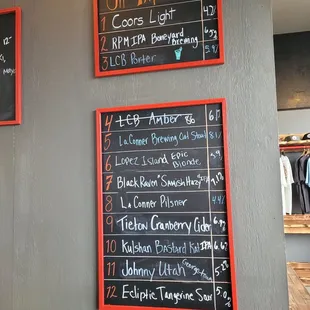 On Tap
1 Coors Light 4.2%
2 RPM IPA Boneyard Brewing
3 LCB Porter
12"
4 LCB Amber
5 LaConner Brewing Stout
6 Lopez Island Epic Blonde
7 Black Raven
8 LaConner Pilsner 4.4%
9 Tieton Cranberry Cider
10 Kulshan Bastard Kat IPA
11 Johnny Utah Georgetown
12 Ecliptic Tangerine Sour